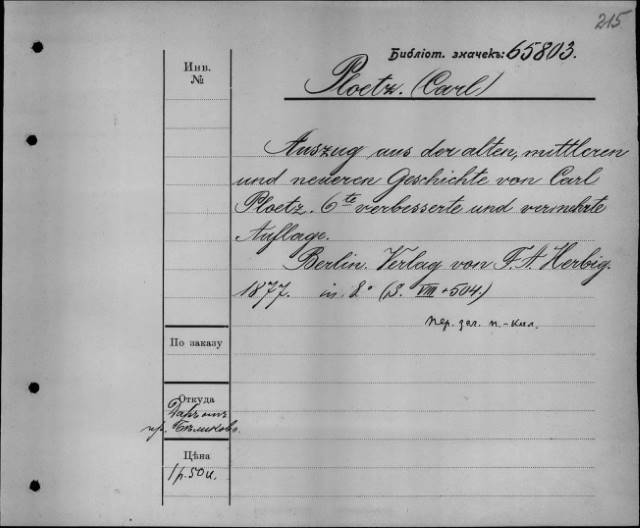 215
Библіот. значекъ: 65803.
Инв.
№
Ploetz. (Carl)
Auszug aus der alten, mittleren
und neueren Geschichte von Carl
Ploetz. 6te verbesserte und vermehrte
Auflage.
Berlin. Verlag von F. A. Herbig.
1877. in 8° (S. VIII + 504.)
пер. зел. п.-кал.
По заказу
Откуда
Даръ отъ
Цѣна
1 р. 50 к.